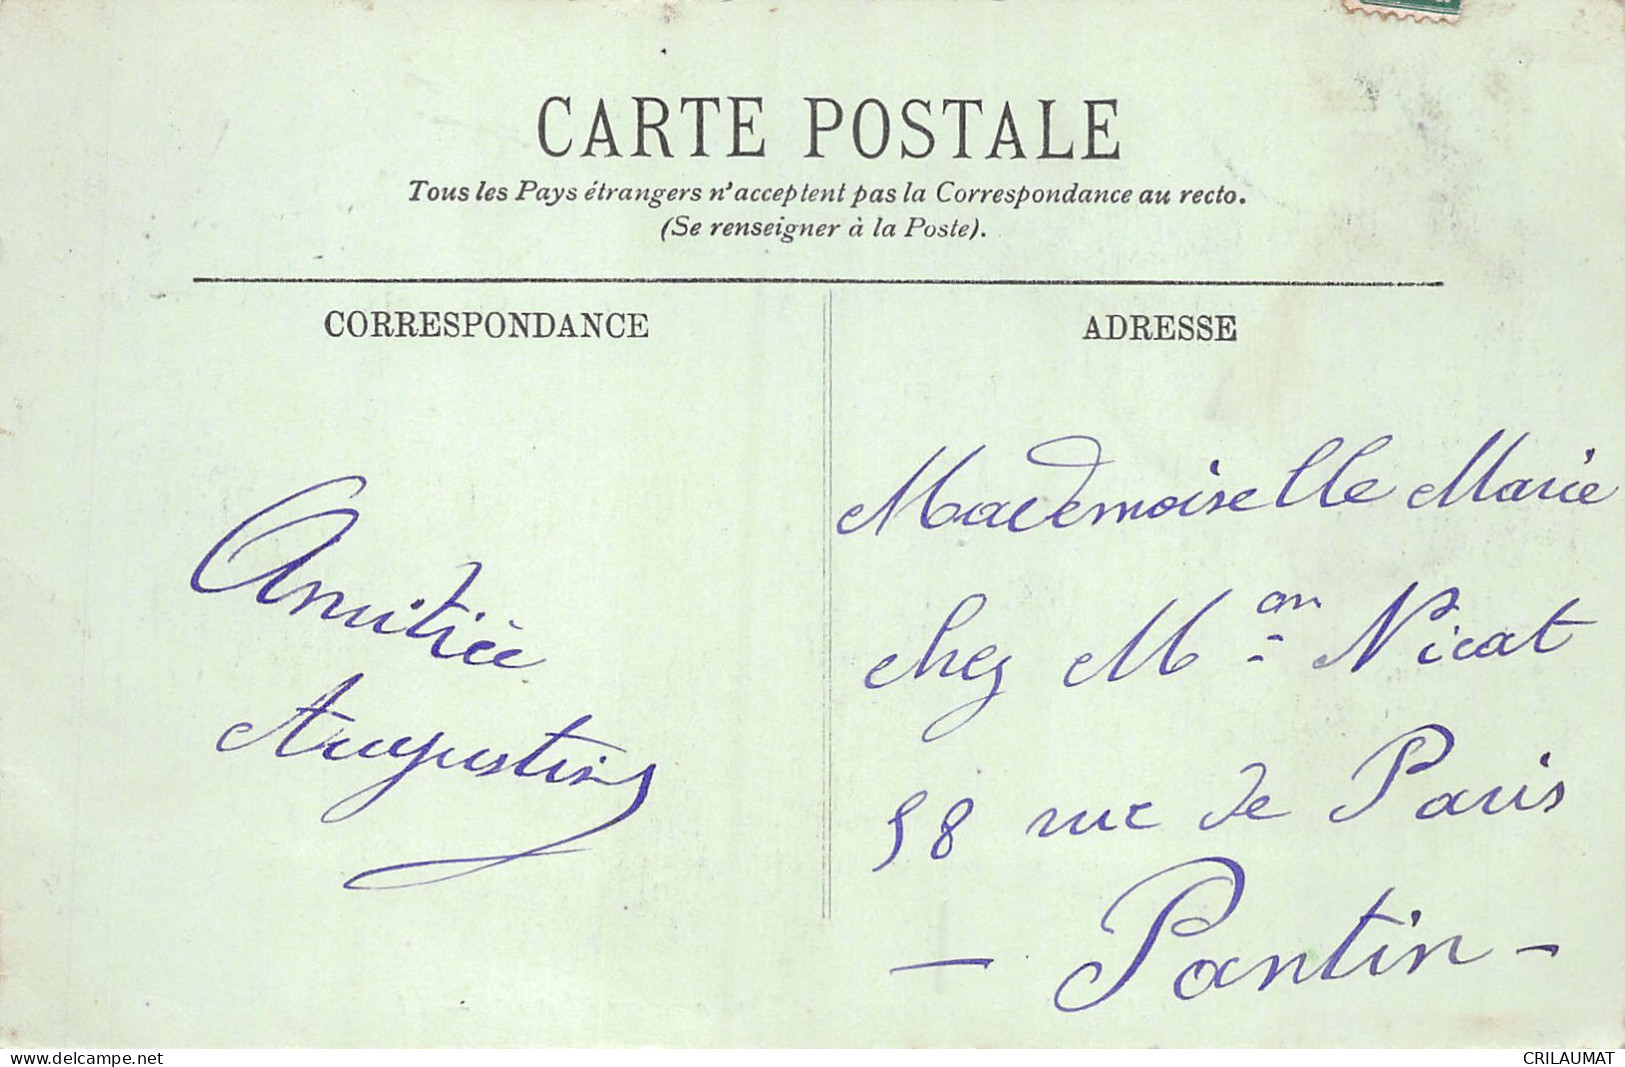 CARTE POSTALE
Tous les Pays étrangers n'acceptent pas la Correspondance au recto.
(Se renseigner à la Poste).
CORRESPONDANCE
ADRESSE
Amitiée
Augustine
Mademoiselle Marie
chez Mon Nicat
58 rue de Paris
- Pantin -
www.delcampe.net
CRILAUMAT